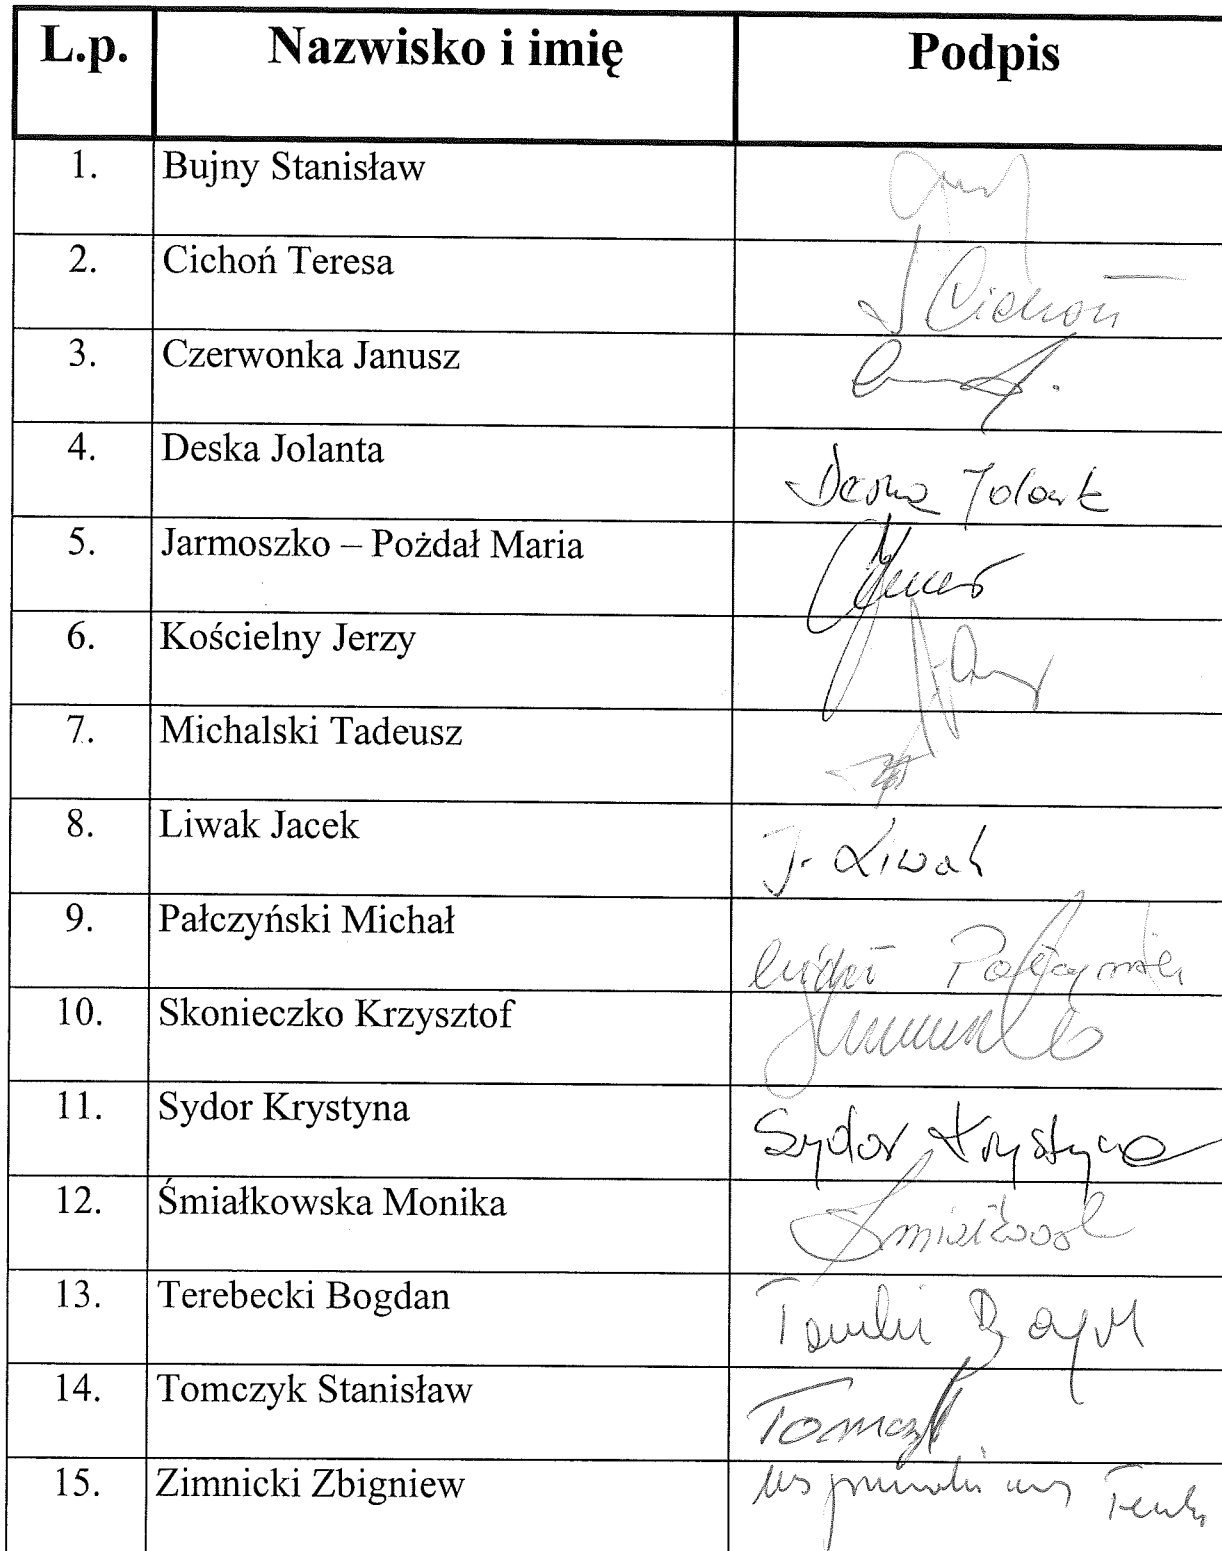 L.p. Nazwisko i imię Podpis
1. Bujny Stanisław
2. Cichoń Teresa Cichoń
3. Czerwonka Janusz
4. Deska Jolanta Deska Jolant
5. Jarmoszko – Pożdał Maria
6. Kościelny Jerzy
7. Michalski Tadeusz
8. Liwak Jacek J. Liwak
9. Pałczyński Michał
10. Skonieczko Krzysztof
11. Sydor Krystyna Sydor Krystyna
12. Śmiałkowska Monika
13. Terebecki Bogdan
14. Tomczyk Stanisław Tomczyk
15. Zimnicki Zbigniew